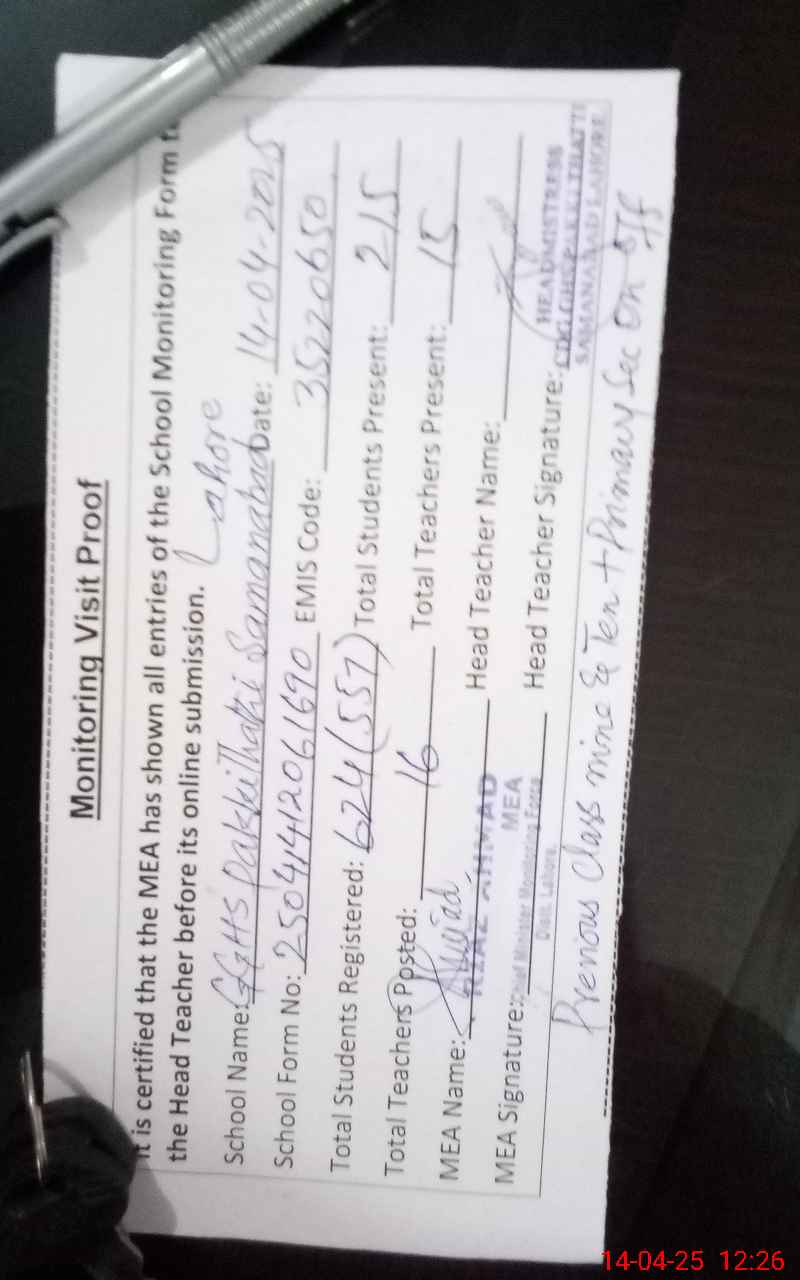 Monitoring Visit Proof
It is certified that the MEA has shown all entries of the School Monitoring Form to
the Head Teacher before its online submission.
Lahore
School Name: GGHS Pakki Thatti Samanabad Date: 14-04-2025
School Form No: 2504412061690 EMIS Code: 35220650
Total Students Registered: 624(557) Total Students Present: 215
Total Teachers Posted: 16 Total Teachers Present: 15
MEA Name: Head Teacher Name:
RIAZ AHMAD
MEA
MEA Signature: Head Teacher Signature:
Chief Minister Monitoring Force
Distt. Lahore.
HEADMISTRESS
CDGL GHS PAKKI THATTI
SAMANABAD LAHORE
Previous Class nine & Ten + Primary Sec on off
14-04-25 12:26